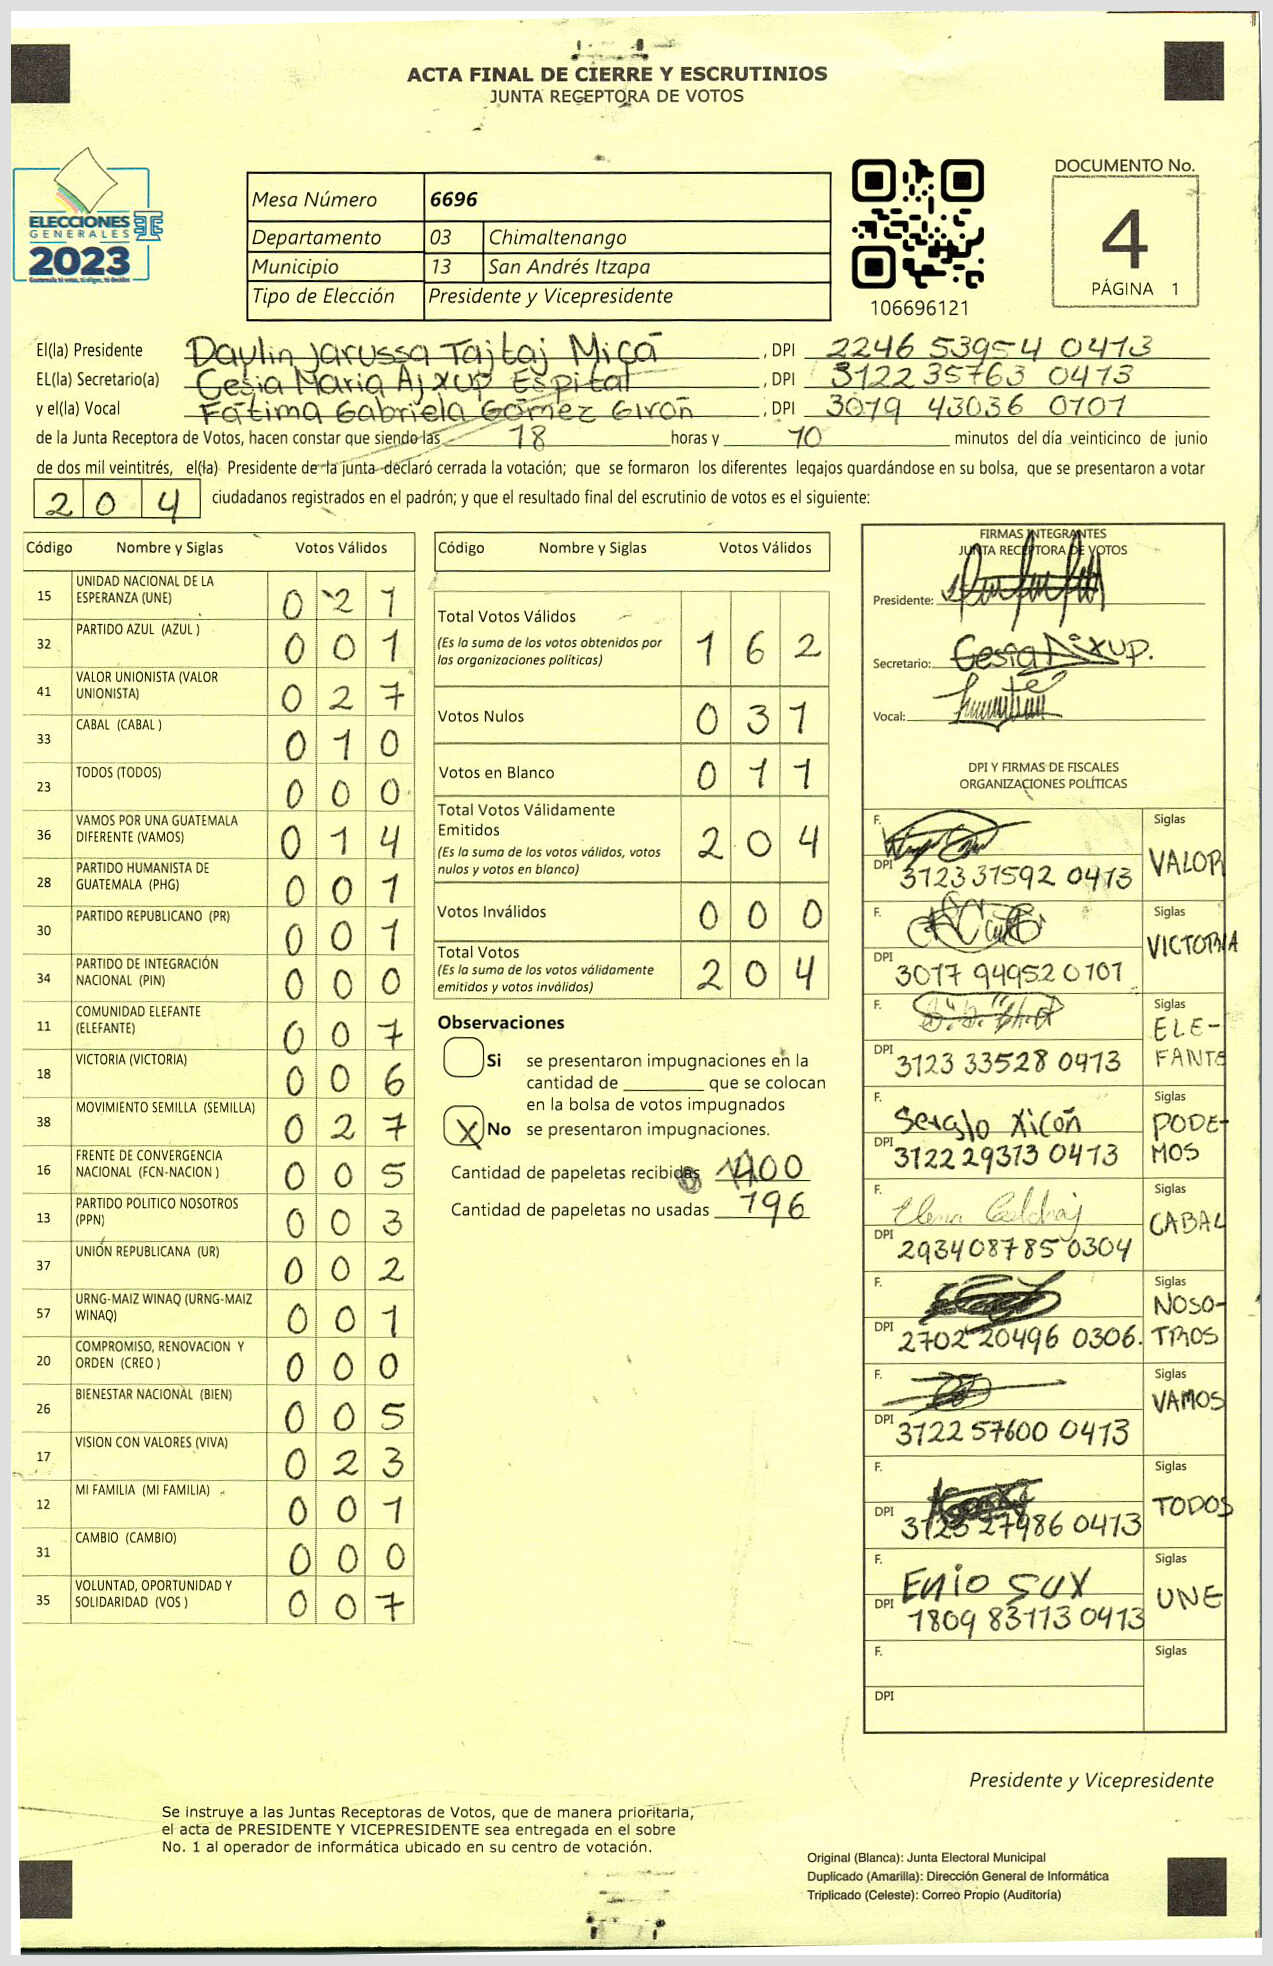 ACTA FINAL DE CIERRE Y ESCRUTINIOS
JUNTA RECEPTORA DE VOTOS
ELECCIONES
GENERALES
2023
Mesa Número 6696
Departamento 03 Chimaltenango
Municipio 13 San Andrés Itzapa
Tipo de Elección Presidente y Vicepresidente
106696121
DOCUMENTO No.
4
PÁGINA 1
El(la) Presidente Daylin Jarussa Tajtaj Micá, DPI 2246 53954 0413
EL(la) Secretario(a) Gesia Maria Ajxup Espital, DPI 3122 35763 0413
y el(la) Vocal Fátima Gabriela Gómez Girón, DPI 3079 43036 0101
de la Junta Receptora de Votos, hacen constar que siendo las 18 horas y 10 minutos del día veinticinco de junio
de dos mil veintitrés, el(la) Presidente de la junta declaró cerrada la votación; que se formaron los diferentes legajos guardándose en su bolsa, que se presentaron a votar
204 ciudadanos registrados en el padrón; y que el resultado final del escrutinio de votos es el siguiente:
Código Nombre y Siglas Votos Válidos
15 UNIDAD NACIONAL DE LA ESPERANZA (UNE) 021
32 PARTIDO AZUL (AZUL ) 001
41 VALOR UNIONISTA (VALOR UNIONISTA) 027
33 CABAL (CABAL ) 010
23 TODOS (TODOS) 000
36 VAMOS POR UNA GUATEMALA DIFERENTE (VAMOS) 014
28 PARTIDO HUMANISTA DE GUATEMALA (PHG) 001
30 PARTIDO REPUBLICANO (PR) 001
34 PARTIDO DE INTEGRACIÓN NACIONAL (PIN) 000
11 COMUNIDAD ELEFANTE (ELEFANTE) 007
18 VICTORIA (VICTORIA) 006
38 MOVIMIENTO SEMILLA (SEMILLA) 027
16 FRENTE DE CONVERGENCIA NACIONAL (FCN-NACION ) 005
13 PARTIDO POLITICO NOSOTROS (PPN) 003
37 UNIÓN REPUBLICANA (UR) 002
57 URNG-MAIZ WINAQ (URNG-MAIZ WINAQ) 001
20 COMPROMISO, RENOVACION Y ORDEN (CREO ) 000
26 BIENESTAR NACIONAL (BIEN) 005
17 VISION CON VALORES (VIVA) 023
12 MI FAMILIA (MI FAMILIA) 001
31 CAMBIO (CAMBIO) 000
35 VOLUNTAD, OPORTUNIDAD Y SOLIDARIDAD (VOS ) 007
Código Nombre y Siglas Votos Válidos
Total Votos Válidos 162
(Es la suma de los votos obtenidos por
las organizaciones políticas)
Votos Nulos 031
Votos en Blanco 011
Total Votos Válidamente
Emitidos 204
(Es la suma de los votos válidos, votos
nulos y votos en blanco)
Votos Inválidos 000
Total Votos 204
(Es la suma de los votos válidamente
emitidos y votos inválidos)
Observaciones
Si se presentaron impugnaciones en la
cantidad de ________ que se colocan
en la bolsa de votos impugnados
X No se presentaron impugnaciones.
Cantidad de papeletas recibidas 400
Cantidad de papeletas no usadas 196
FIRMAS INTEGRANTES
JUNTA RECEPTORA DE VOTOS
Presidente:
Secretario: Gesia Ajxup.
Vocal:
DPI Y FIRMAS DE FISCALES
ORGANIZACIONES POLÍTICAS
F. Siglas
DPI 3123 31592 0413 VALOR
F. Siglas
DPI 3017 94952 0101 VICTORIA
F. Siglas
DPI 3123 33528 0413 ELE-FANTE
F. Sergio Xicón Siglas
DPI 3122 29313 0413 PODE-MOS
F. Siglas
DPI 2934 08785 0304 CABAL
F. Siglas
DPI 2702 20496 0306. NOSO-TROS
F. Siglas
DPI 3122 57600 0413 VAMOS
F. Siglas
DPI 3123 27986 0413 TODOS
F. Enio SUX Siglas
DPI 1809 83113 0413 UNE
F. Siglas
DPI
Presidente y Vicepresidente
Se instruye a las Juntas Receptoras de Votos, que de manera prioritaria,
el acta de PRESIDENTE Y VICEPRESIDENTE sea entregada en el sobre
No. 1 al operador de informática ubicado en su centro de votación.
Original (Blanca): Junta Electoral Municipal
Duplicado (Amarilla): Dirección General de Informática
Triplicado (Celeste): Correo Propio (Auditoría)